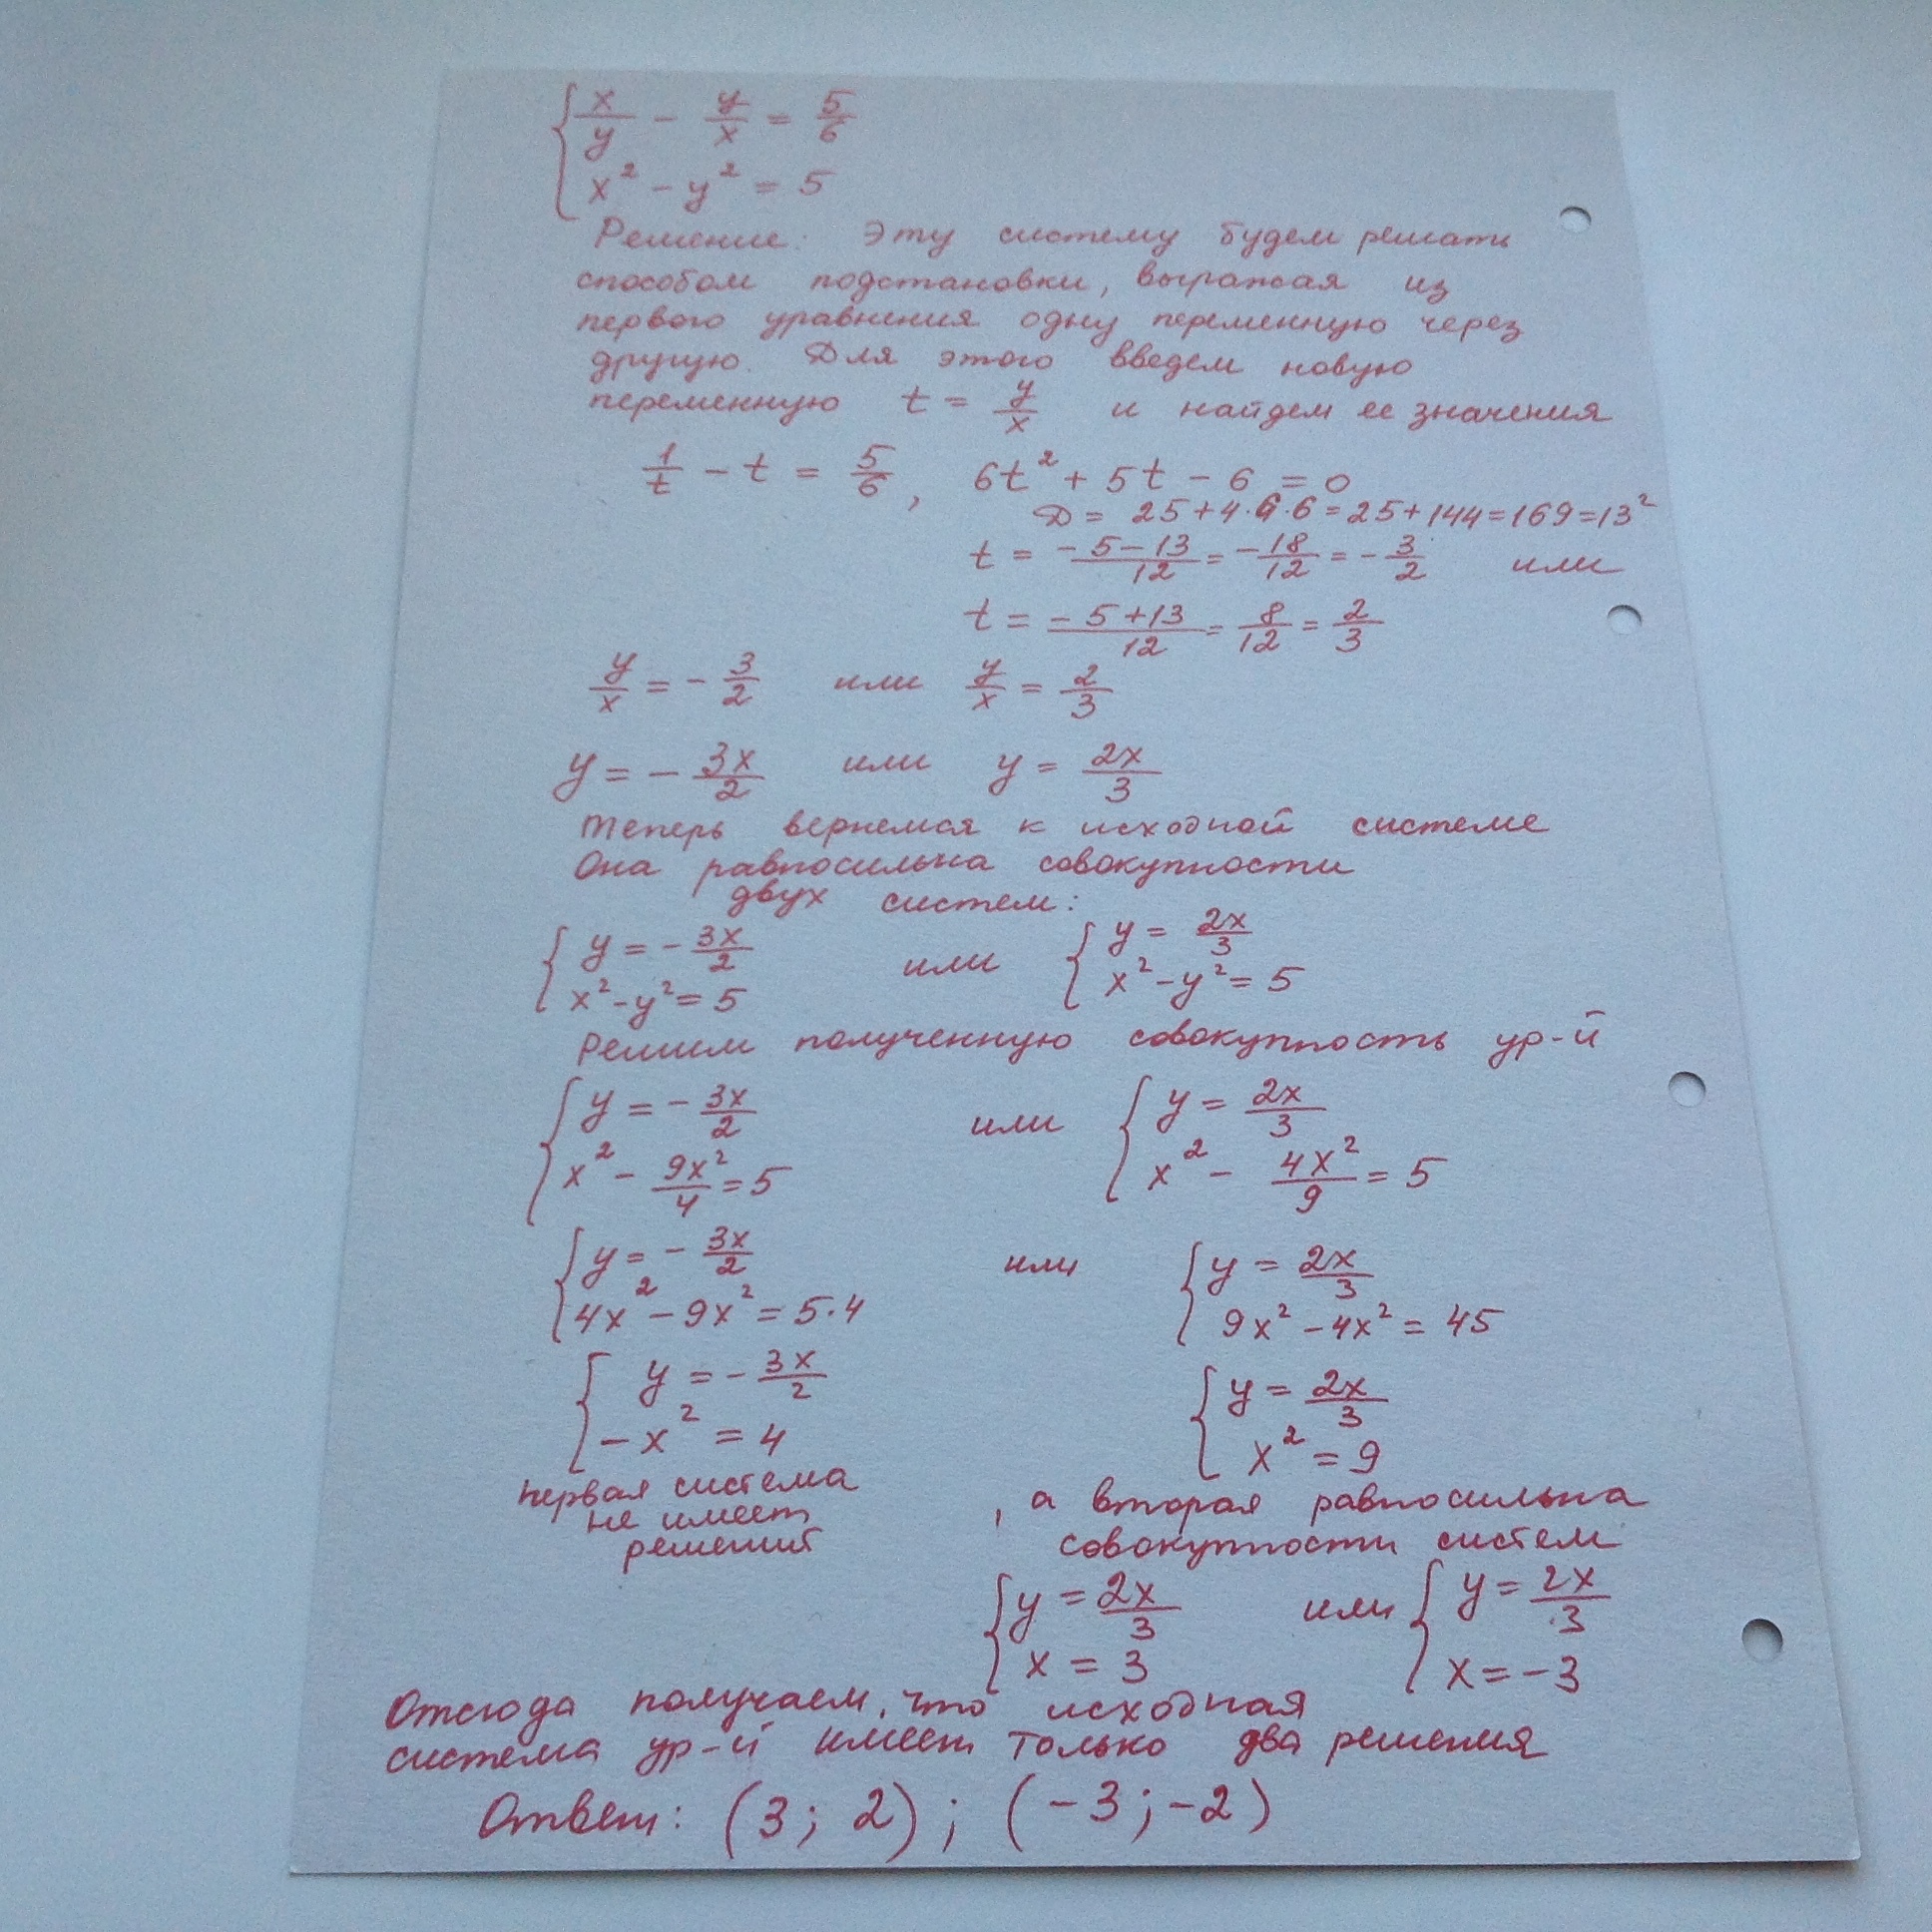 { x/y - y/x = 5/6
x² - y² = 5
Решение: Эту систему будем решать
способом подстановки, выражая из
первого уравнения одну переменную через
другую. Для этого введем новую
переменную t = y/x и найдем ее значения
1/t - t = 5/6, 6t² + 5t - 6 = 0
D = 25+4·6·6=25+144=169=13²
t = (-5-13)/12 = -18/12 = -3/2 или
t = (-5+13)/12 = 8/12 = 2/3
y/x = -3/2 или y/x = 2/3
y = -3x/2 или y = 2x/3
Теперь вернемся к исходной системе
Она равносильна совокупности
двух систем:
{ y = -3x/2 или { y = 2x/3
x² - y² = 5 x² - y² = 5
Решим полученную совокупность ур-й
{ y = -3x/2 или { y = 2x/3
x² - 9x²/4 = 5 x² - 4x²/9 = 5
{ y = -3x/2 или { y = 2x/3
4x² - 9x² = 5·4 9x² - 4x² = 45
{ y = -3x/2 { y = 2x/3
-x² = 4 x² = 9
первая система , а вторая равносильна
не имеет
решений совокупности систем
{ y = 2x/3 или { y = 2x/3
x = 3 x = -3
Отсюда получаем, что исходная
система ур-й имеет только два решения
Ответ: (3; 2); (-3; -2)